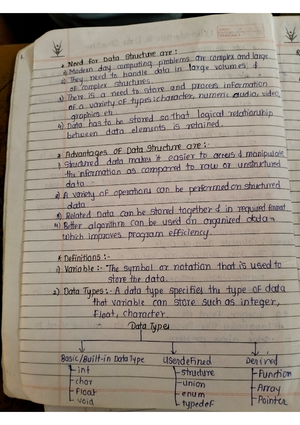 * Need for Data Structure are:
1) Modern day computing problems are complex and large.
2) They need to handle data in large volumes &
of complex structures.
3) There is a need to store and process information
of a variety of types: character, numeric audio, video,
graphics etc
4) Data has to be stored so that logical relationship
between data elements is retained.
* Advantages of Data Structure are :-
1) Structured data makes it easier to access & manipulate
the information as compared to raw or unstructured
data.
2) A variety of operations can be performed on structured
data.
3) Related Data can be stored together & in required format
4) Better algorithm can be used on organised data
which improves program efficiency.
* Definitions :-
1) Variable :- The symbol or notation that is used to
store the data.
2) Data Types:- A data type specifies the type of data
that variable can store such as integer,
float, character
Data Types
Basic/Built-in Data Type Userdefined Derived
int structure Function
char union Array
float enum Pointer
void typedef